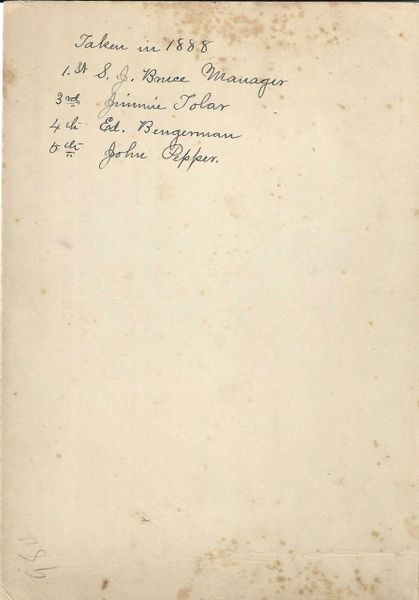 Taken in 1888
1.st S. J. Bruce Manager
3rd Jimmie Tolar
4th Ed. Bengerman
5th John Pepper.